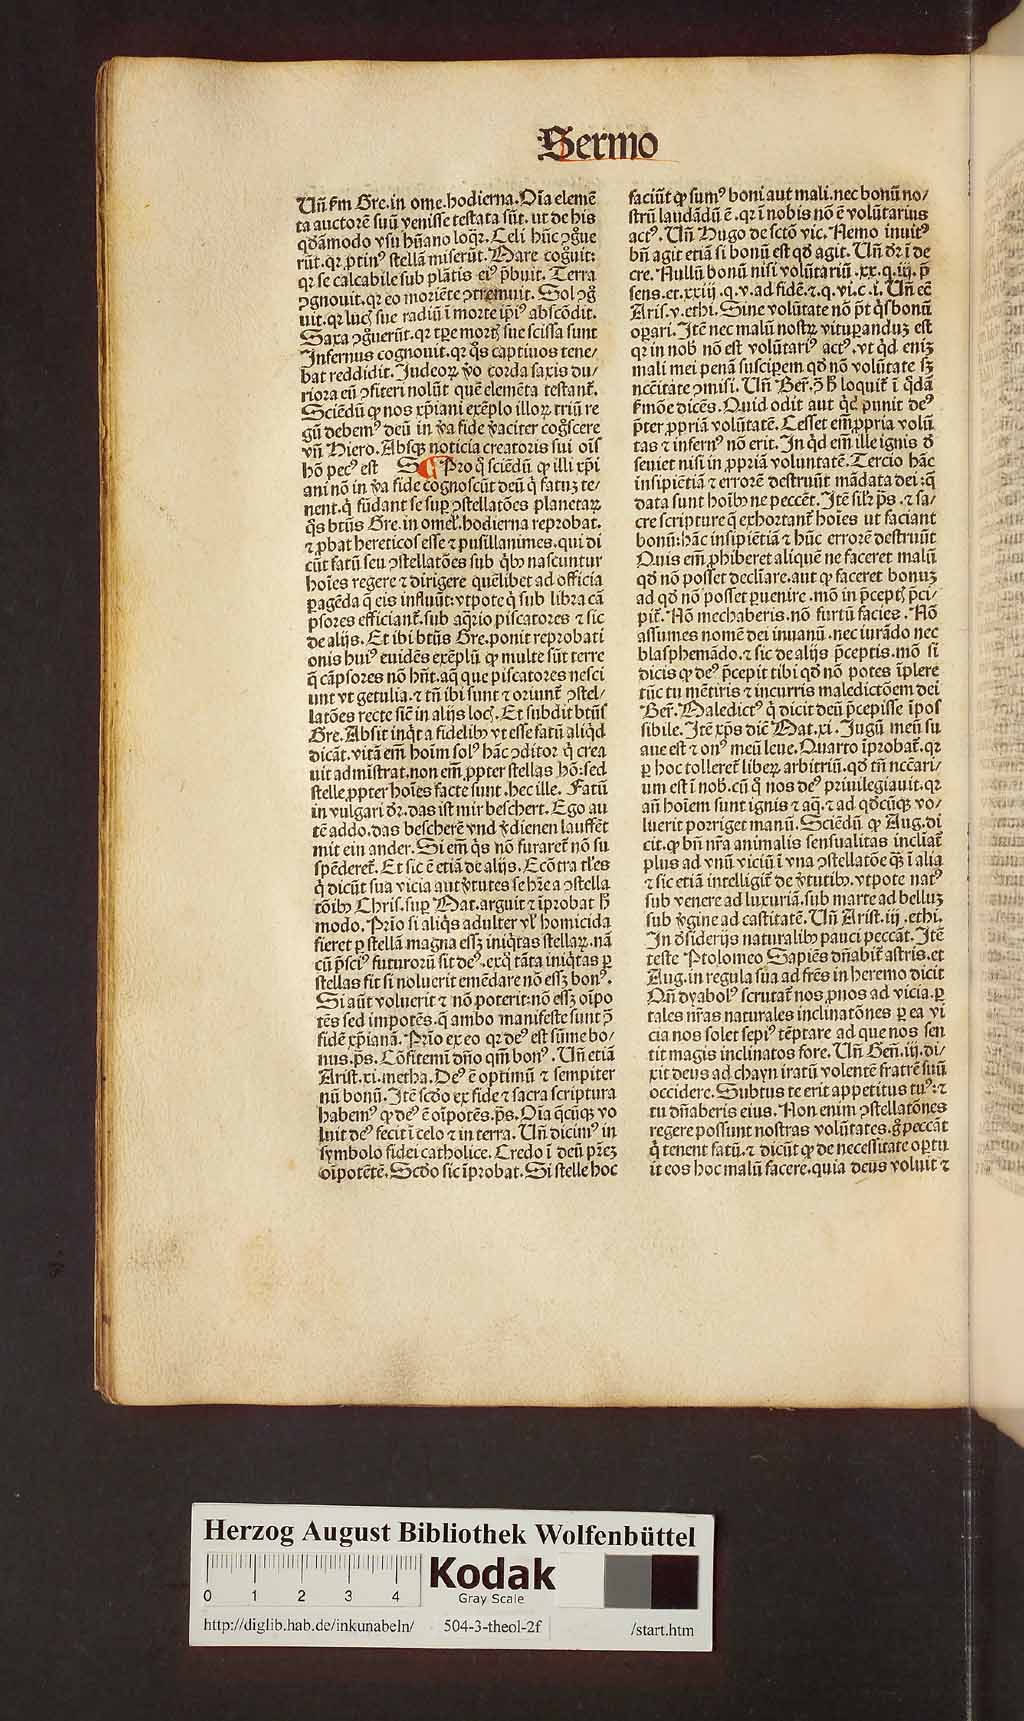 Sermo
Un̄ ẜm Gre. in ome. hodierna. Oīa elemē
ta auctorē suū venisse testata sūt. ut de his
qd̄āmodo vsu hūano loq̄r. Celi hūc ꝯg̊ue
rūt. qr ꝓtinꝰ stellā miserūt. Mare cog̊uit:
qr se calcabile sub plātis eiꝰ p̄buit. Terra
ꝯgnouit. qr eo moriēte ꝯtremuit. Sol ꝯg̊
uit. qr lucꝭ sue radiū ī morte ip̄iꝰ abscōdit.
Saxa ꝯg̊uerūt. qr tꝑe mortꝭ sue scissa sunt
Infernus cognouit. qr q̊s captiuos tene/
bat reddidit. Iudeoꝝ v̊o corda saxis du/
riora eū ꝯfiteri nolūt quē elemēta testant̄.
Sciēdū ꝙ nos xp̄iani exēplo illoꝝ triū re
gū debemꝰ deū in v̊a fide v̊aciter cog̊scere
vn̄ Hiero. Absqꝫ noticia creatoris sui oīs
hō pecꝰ est S Pro q̊ sciēdū ꝙ illi xp̄i
ani nō in v̊a fide cognoscūt deū q̇ fatuꝫ te/
nent. q̇ fūdant se suꝑ ꝯstellatōes planetaꝝ
q̊s btūs Gre. in omel̓. hodierna reprobat.
⁊ ꝓbat hereticos esse ⁊ pusillanimes. qui di
cūt fatū seu ꝯstellatōes sub q̇bꝰ nascuntur
hoīes regere ⁊ dirigere quēlibet ad officia
ꝑagēda q̄ eis influūt: vtpote q̇ sub libra cā
psores efficiant̄. sub aq̄rio piscatores ⁊ sic
de alijs. Et ibi btūs Gre. ponit reprobati
onis huiꝰ euidēs exēplū ꝙ multe sūt terre
q̄ cāpsores nō hn̄t. aq̄ que piscatores nesci
unt vt getulia. ⁊ tn̄ ibi sunt ⁊ oriunt̄ ꝯstel/
latōes recte sic̄ in alijs locꝭ. Et subdit btūs
Gre. Absit inq̇t a fidelibꝰ vt esse fatū aliq̇d
dicāt. vitā em̄ hoīm solꝰ hāc ꝯditor q̇ crea
uit admīstrat. non em̄ ꝓpter stellas hō: sed
stelle ꝓpter hoīes facte sunt. hec ille. Fatū
in vulgari dr̄. das ist mir beschert. Ego au
tē addo. das bescherē vnd v̓dienen lauffēt
mit ein ander. Si em̄ q̇s nō furaret̄ nō su
spēderet̄. Et sic ē etiā de alijs. Ecōtra tl̓es
q̇ dicūt sua vicia aut v̓tutes se hr̄e a ꝯstella
tōibꝰ Chris. suꝑ Mat. arguit ⁊ īprobat h̄
modo. Prīo si aliq̇s adulter vl̓ homicida
fieret ꝑ stellā magna essꝫ iniq̇tas stellaꝝ. nā
cū p̄sciꝰ futuroꝝ sit deꝰ. exq̇ tāta iniq̇tas ꝑ
stellas fit si noluerit emēdare nō essꝫ bonꝰ.
Si aūt voluerit ⁊ nō poterit: nō essꝫ oīpo
tēs sed impotēs. q̄ ambo manifeste sunt ꝯ̄
fidē xp̄ianā. Prīo ex eo qr deꝰ est sūme bo/
nus. p̄s. Cōfitemī dn̄o qm̄ bonꝰ. Un̄ etiā
Arist. xi. metha. Deꝰ ē optimū ⁊ sempiter
nū bonū. Itē scd̄o ex fide ⁊ sacra scriptura
habemꝰ ꝙ deꝰ ē oīpotēs. p̄s. Oīa q̄cūqꝫ vo
luit deꝰ fecit ī celo ⁊ in terra. Un̄ dicimꝰ in
symbolo fidei catholice. Credo ī deū pr̄eꝫ
oīpotētē. Scd̄o sic īprobat. Si stelle hoc
faciūt ꝙ sumꝰ boni aut mali. nec bonū no/
strū laudādū ē. qr ī nobis nō ē volūtarius
actꝰ. Un̄ Hugo de scto vic. Nemo inuitꝰ
bn̄ agit etiā si bonū est qd̄ agit. Un̄ dr̄ ī de
cre. Nullū bonū nisi volūtariū. xx. q. iij. p̄
sens. et. xxiij. q. v. ad fidē. ⁊. q. vi. c. i. Un̄ ec̄
Aris. v. ethi. Sine volūtate nō p̄t q̇s bonū
oꝑari. Itē nec malū nostꝝ vituꝑanduꝫ est
qr in nob̄ nō est volūtariꝰ actꝰ. vt q̇d eniꝫ
mali mei penā suscipem qd̄ nō volūtate sꝫ
nc̄citate ꝯmisi. Un̄ Ber̄. ꝯ̄ h̄ loquit̄ ī q̄dā
ẜmōe dicēs. Quid odit aut q̇d punit deꝰ
p̄ter ꝓpriā volūtatē. Cesset em̄ ꝓpria volū
tas ⁊ infernꝰ nō erit. In q̇d em̄ ille ignis d̓
seuiet nisi in ꝓpriā voluntatē. Tercio hāc
insipiētiā ⁊ errorē destruūt mādata dei: q̄
data sunt hoībꝰ ne peccēt. Itē silr̄ p̄s. ⁊ sa/
cre scripture q̄ exhortant̄ hoīes ut faciant
bonū: hāc insipiētiā ⁊ hūc errorē destruūt
Quis em̄ ꝓhiberet aliquē ne faceret malū
qd̄ nō posset declīare. aut ꝙ faceret bonuꝫ
ad qd̄ nō posset ꝑuenire. mō in p̄ceptꝭ p̄ci/
pit̄. Nō mechaberis. nō furtū facies. Nō
assumes nomē dei inuanū. nec iurādo nec
blasphemādo. ⁊ sic de alijs p̄ceptis. mō si
dicis ꝙ deꝰ p̄cepit tibi qd̄ nō potes īplere
tūc tu mētiris ⁊ incurris maledictōem dei
Ber̄. Maledictꝰ q̇ dicit deū p̄cepisse īpos
sibile. Itē xp̄s dic̄ Mat. xi. Iugū meū su
aue est ⁊ onꝰ meū leue. Quarto īprobat̄. qr
ꝑ hoc tolleret̄ libeꝝ arbitriū. qd̄ tn̄ nc̄cari/
um est ī nob̄. cū q̊ nos deꝰ priuilegiauit. qr
an̄ hoīem sunt ignis ⁊ aq̄. ⁊ ad qd̄cūqꝫ vo/
luerit porriget manū. Sciēdū ꝙ Aug. di
cit. ꝙ bn̄ nr̄a animalis sensualitas inclīat̄
plus ad vnū viciū ī vna ꝯstellatōe qꝫ ī alia
⁊ sic etiā intelligit̄ de v̓tutibꝰ. vtpote natꝰ
sub venere ad luxuriā. sub marte ad belluꝫ
sub v̓gine ad castitatē. Un̄ Arist. iij. ethi.
In d̓siderijs naturalibꝰ pauci peccāt. Itē
teste Ptolomeo Sapiēs dn̄abit̄ astris. et
Aug. in regula sua ad fr̄es in heremo dicit
Qn̄ dyabolꝰ scrutat̄ nos ꝓnos ad vicia. ꝑ
tales nr̄as naturales inclinatōnes ꝑ ea vi
cia nos solet sepiꝰ tēptare ad que nos sen
tit magis inclinatos fore. Un̄ Gen̄. iij. di/
xit deus ad chayn iratū volentē fratrē suū
occidere. Subtus te erit appetitus tuꝰ: ⁊
tu dn̄aberis eius. Non enim ꝯstellatōnes
regere possunt nostras volūtates. g̊ peccāt
q̇ tenent fatū. ⁊ dicūt ꝙ de necessitate oꝑtu
it eos hoc malū facere. quia deus voluit ⁊
Herzog August Bibliothek Wolfenbüttel
0 1 2 3 4
Kodak
Gray Scale
http://diglib.hab.de/inkunabeln/ 504-3-theol-2f /start.htm